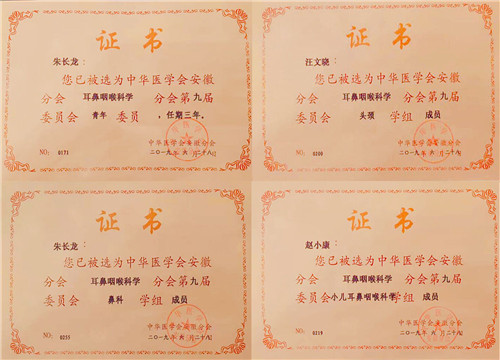 证书
朱长龙：
您已被选为中华医学会安徽
分会 耳鼻咽喉科学 分会第九届
委员会 青年 委员，任期三年。
中华医学会安徽分会
NO: 0171
二〇一九年 六 月二十八日
证书
汪文晓：
您已被选为中华医学会安徽
分会 耳鼻咽喉科学 分会第九届
委员会 头颈 学组 成员
中华医学会安徽分会
NO: 0308
二〇一九年 六 月二十八日
证书
朱长龙：
您已被选为中华医学会安徽
分会 耳鼻咽喉科学 分会第九届
委员会 鼻科 学组 成员
中华医学会安徽分会
NO: 0255
二〇一九年 六 月二十八日
证书
赵小康：
您已被选为中华医学会安徽
分会 耳鼻咽喉科学 分会第九届
委员会小儿耳鼻咽喉科学学组 成员
中华医学会安徽分会
NO: 0319
二〇一九年 六 月二十八日